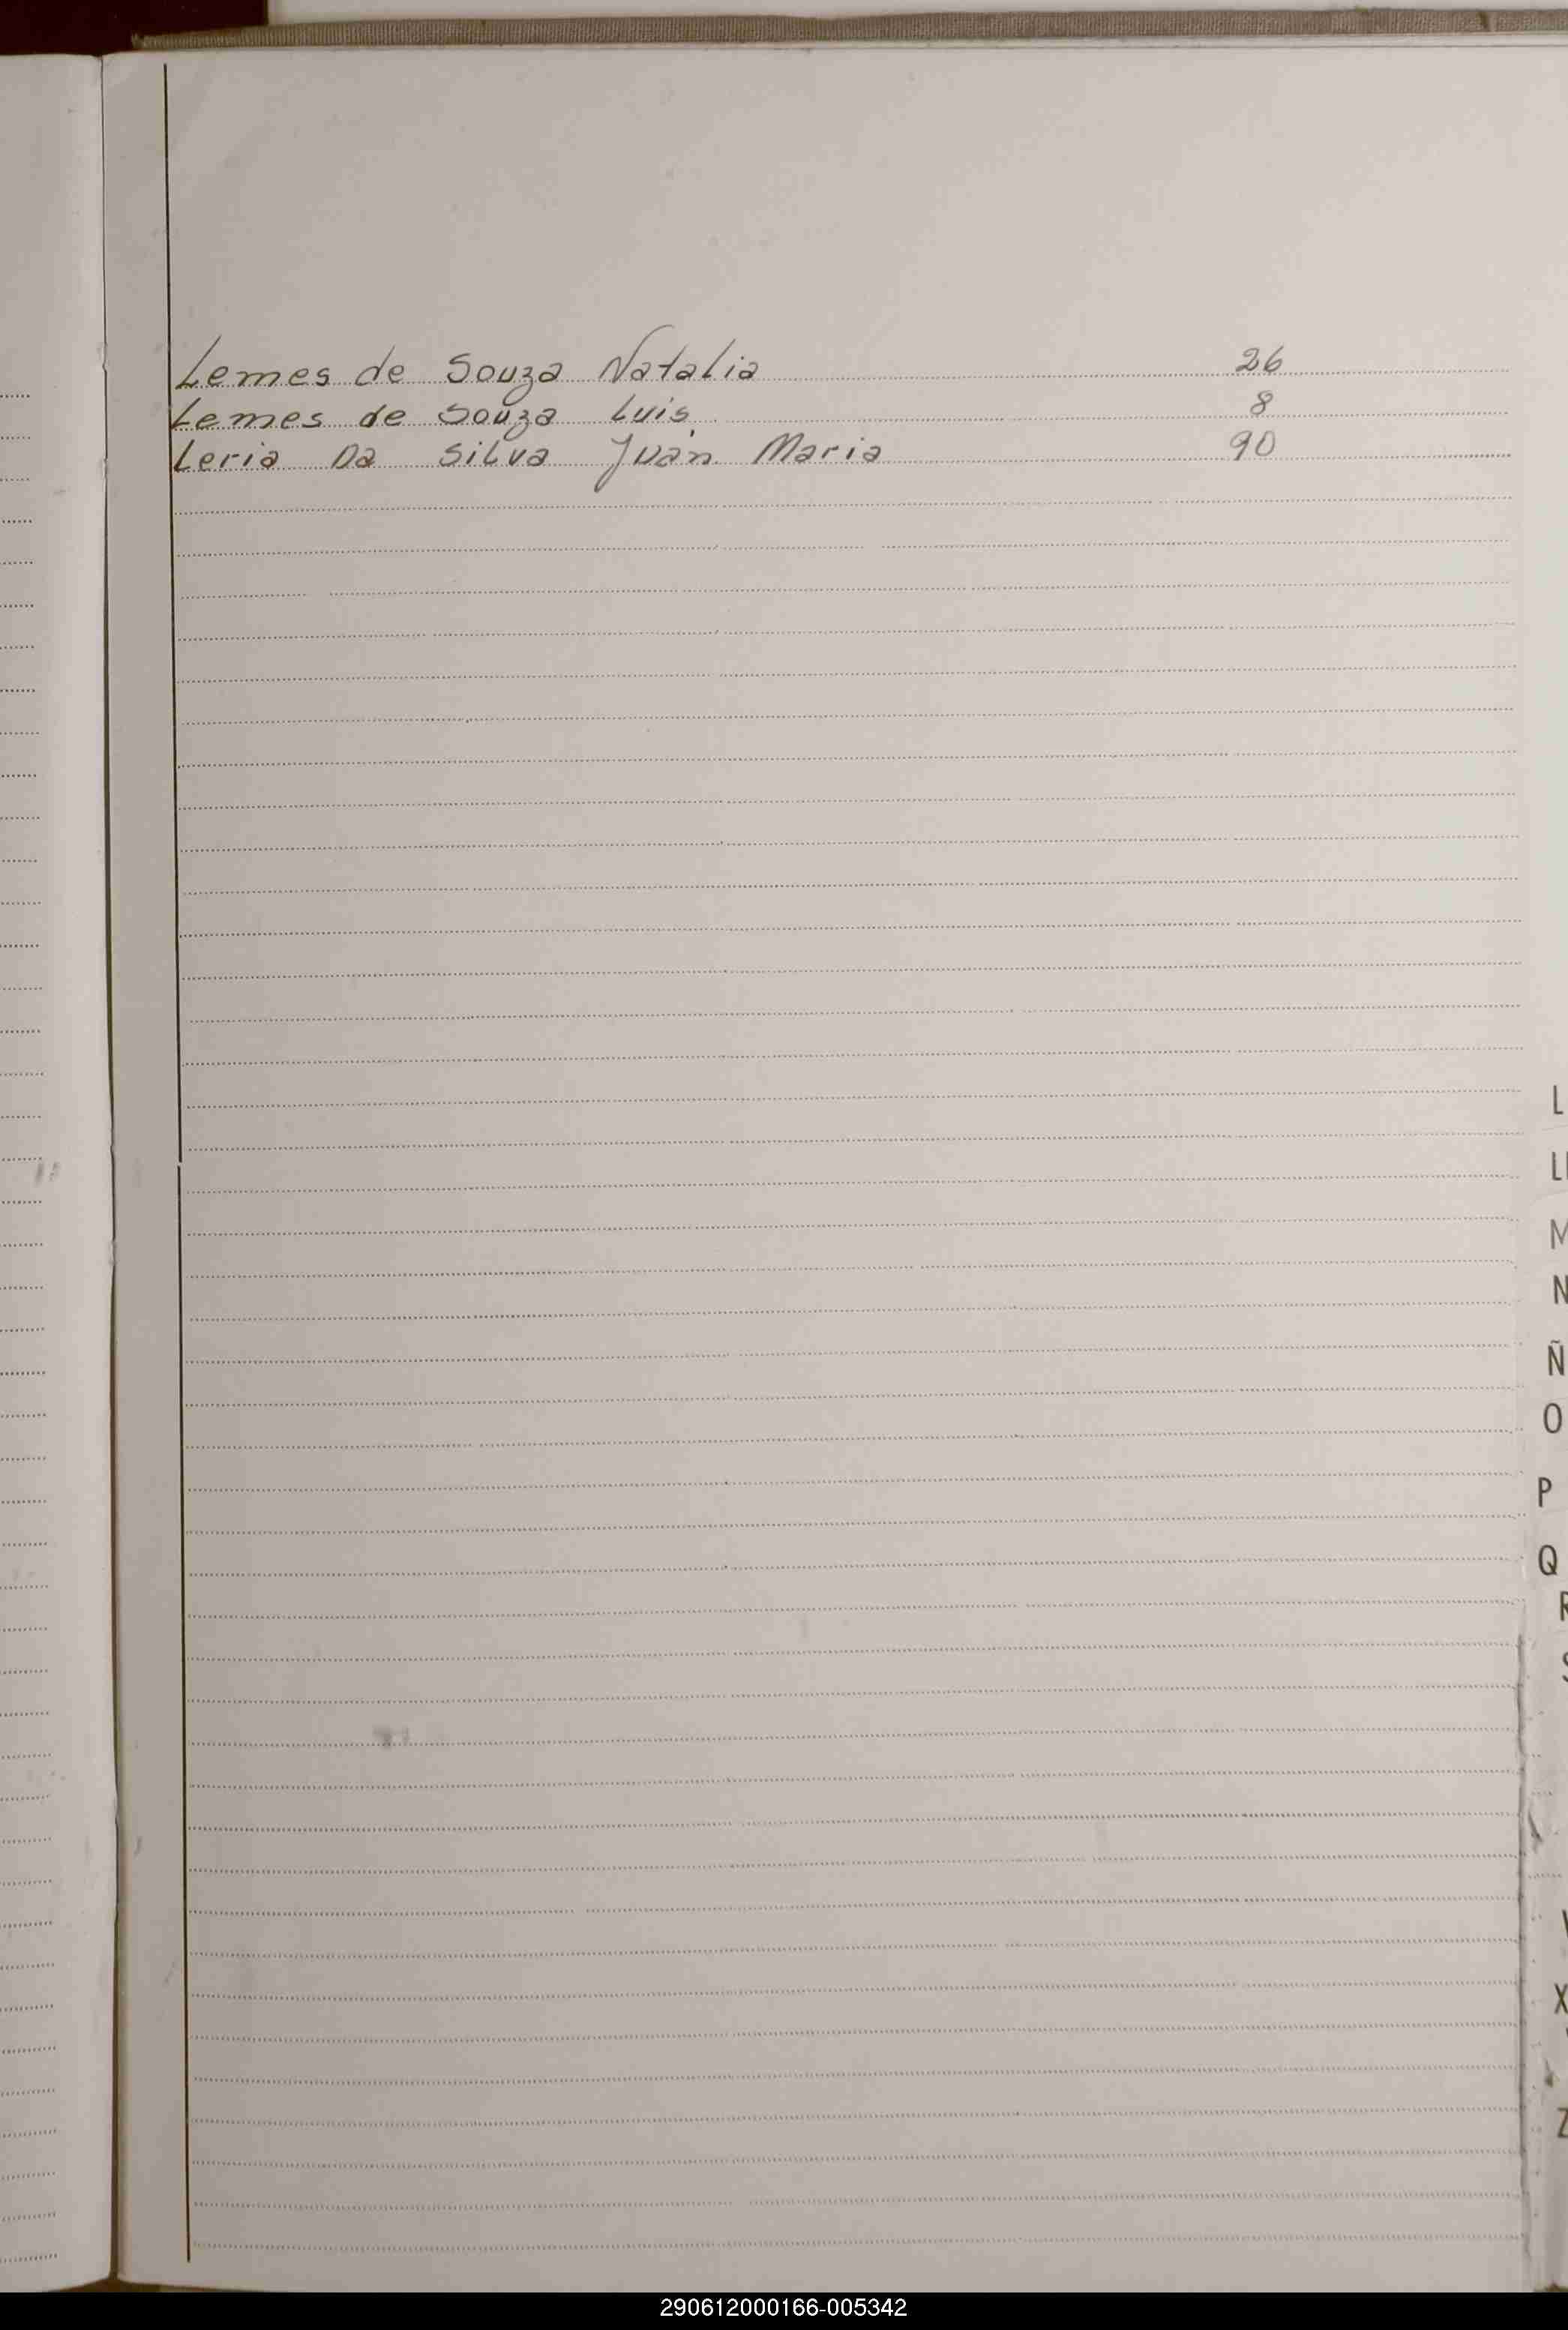 Lemes de Souza Natalia 26
Lemes de Souza Luis 8
Leria Da Silva Juan Maria 90
L
Ll
M
N
Ñ
O
P
Q
R
S
V
X
Z
290612000166-005342